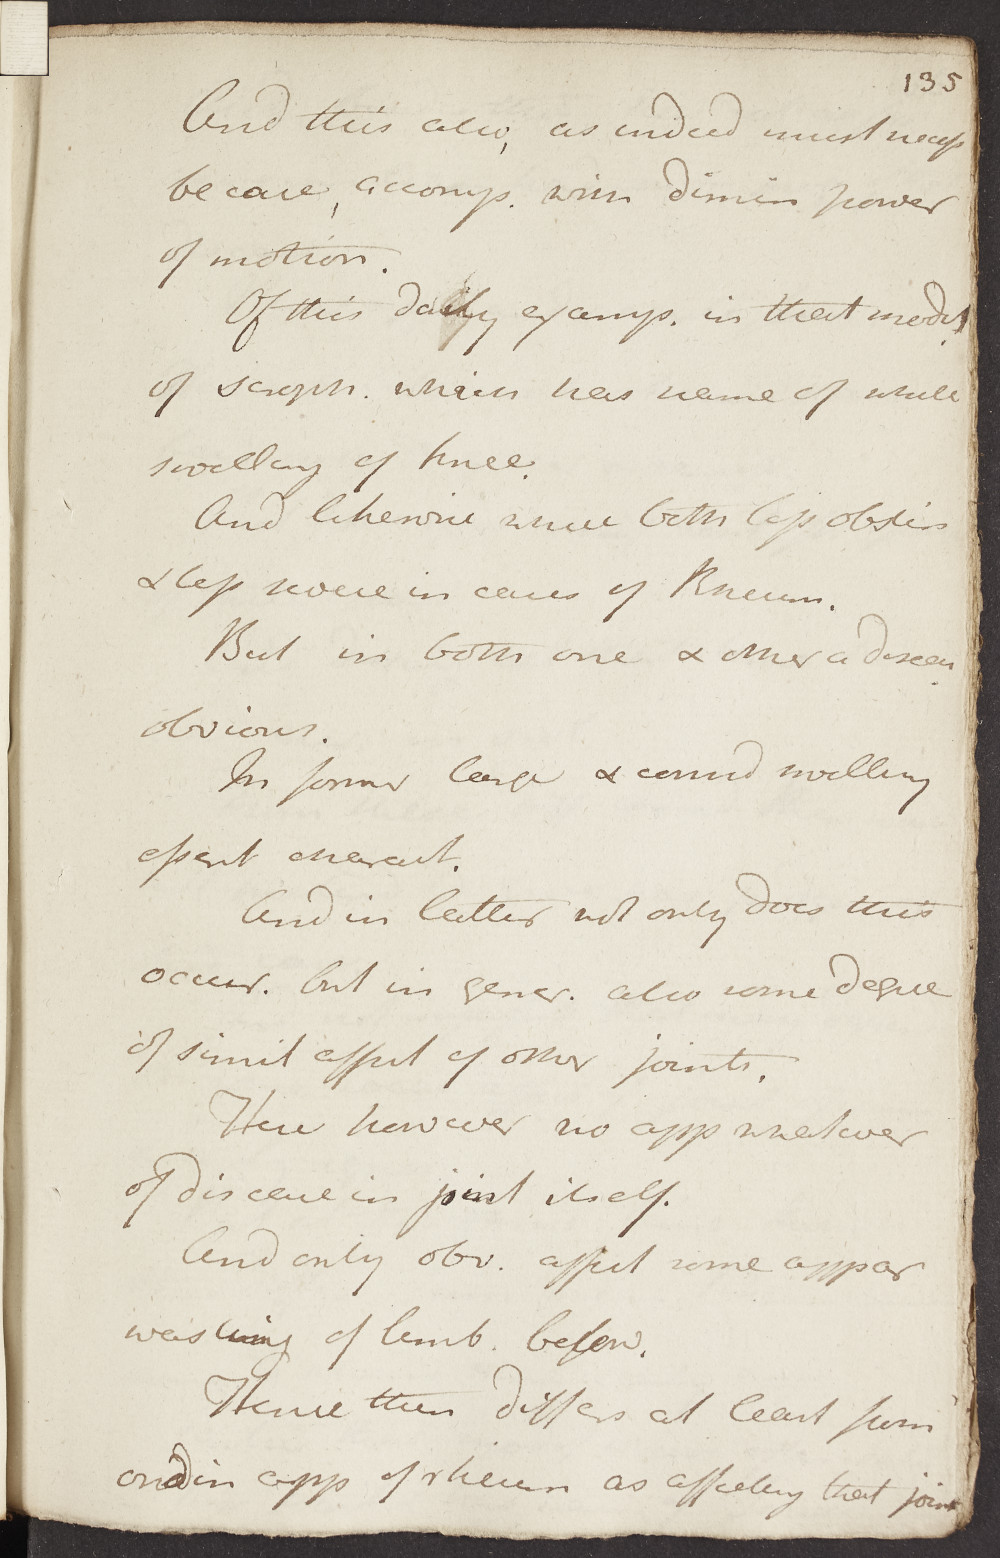 135
And this also, as indeed must necess
be case, accomp. with dimin power
of motion.
Of this daily examp. in that modif
of scroph. which has name of white
swelling of knee.
And likewise where both less obstin
& less severe in cases of Rheum.
But in both one & other a diseas
obvious.
In former large & consid swelling
essent charact.
And in latter not only does this
occur. but in gener. also some degree
of simil affect of other joints.
Here however no app whatever
of disease in joint itself.
And only obv. affect some appar
wasting of limb. below.
Hence then differs at least from
ordin app of rheum as affecting that joint